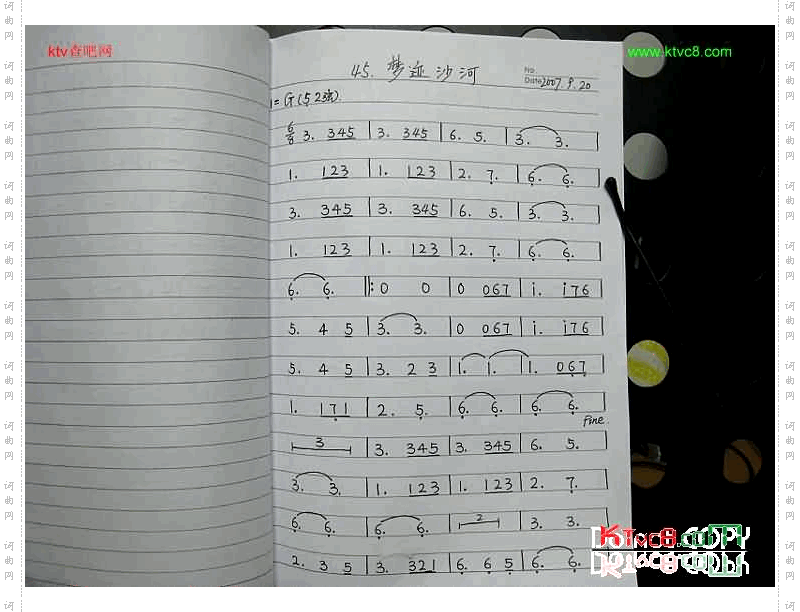 ktv查吧网
www.ktvc8.com
45. 梦迹沙河
No.
Date 2007.9.20
1=G(5 2弦)
6/8 3. 345 | 3. 345 | 6. 5. | 3. 3. |
1. 123 | 1. 123 | 2. 7. | 6. 6. |
3. 345 | 3. 345 | 6. 5. | 3. 3. |
1. 123 | 1. 123 | 2. 7. | 6. 6. |
6. 6. ‖: 0 0 | 0 067 | i. i76 |
5. 4 5 | 3. 3. | 0 067 | i. i76 |
5. 4 5 | 3. 2 3 | 1. 1. | 1. 067 |
1. 171 | 2. 5. | 6. 6. | 6. 6. |
Fine.
3 | 3. 345 | 3. 345 | 6. 5. |
3. 3. | 1. 123 | 1. 123 | 2. 7. |
6. 6. | 6. 6. | 2 | 3. 3. |
2. 3 5 | 3. 321 | 6. 6 5 | 6. 6. |
词曲网